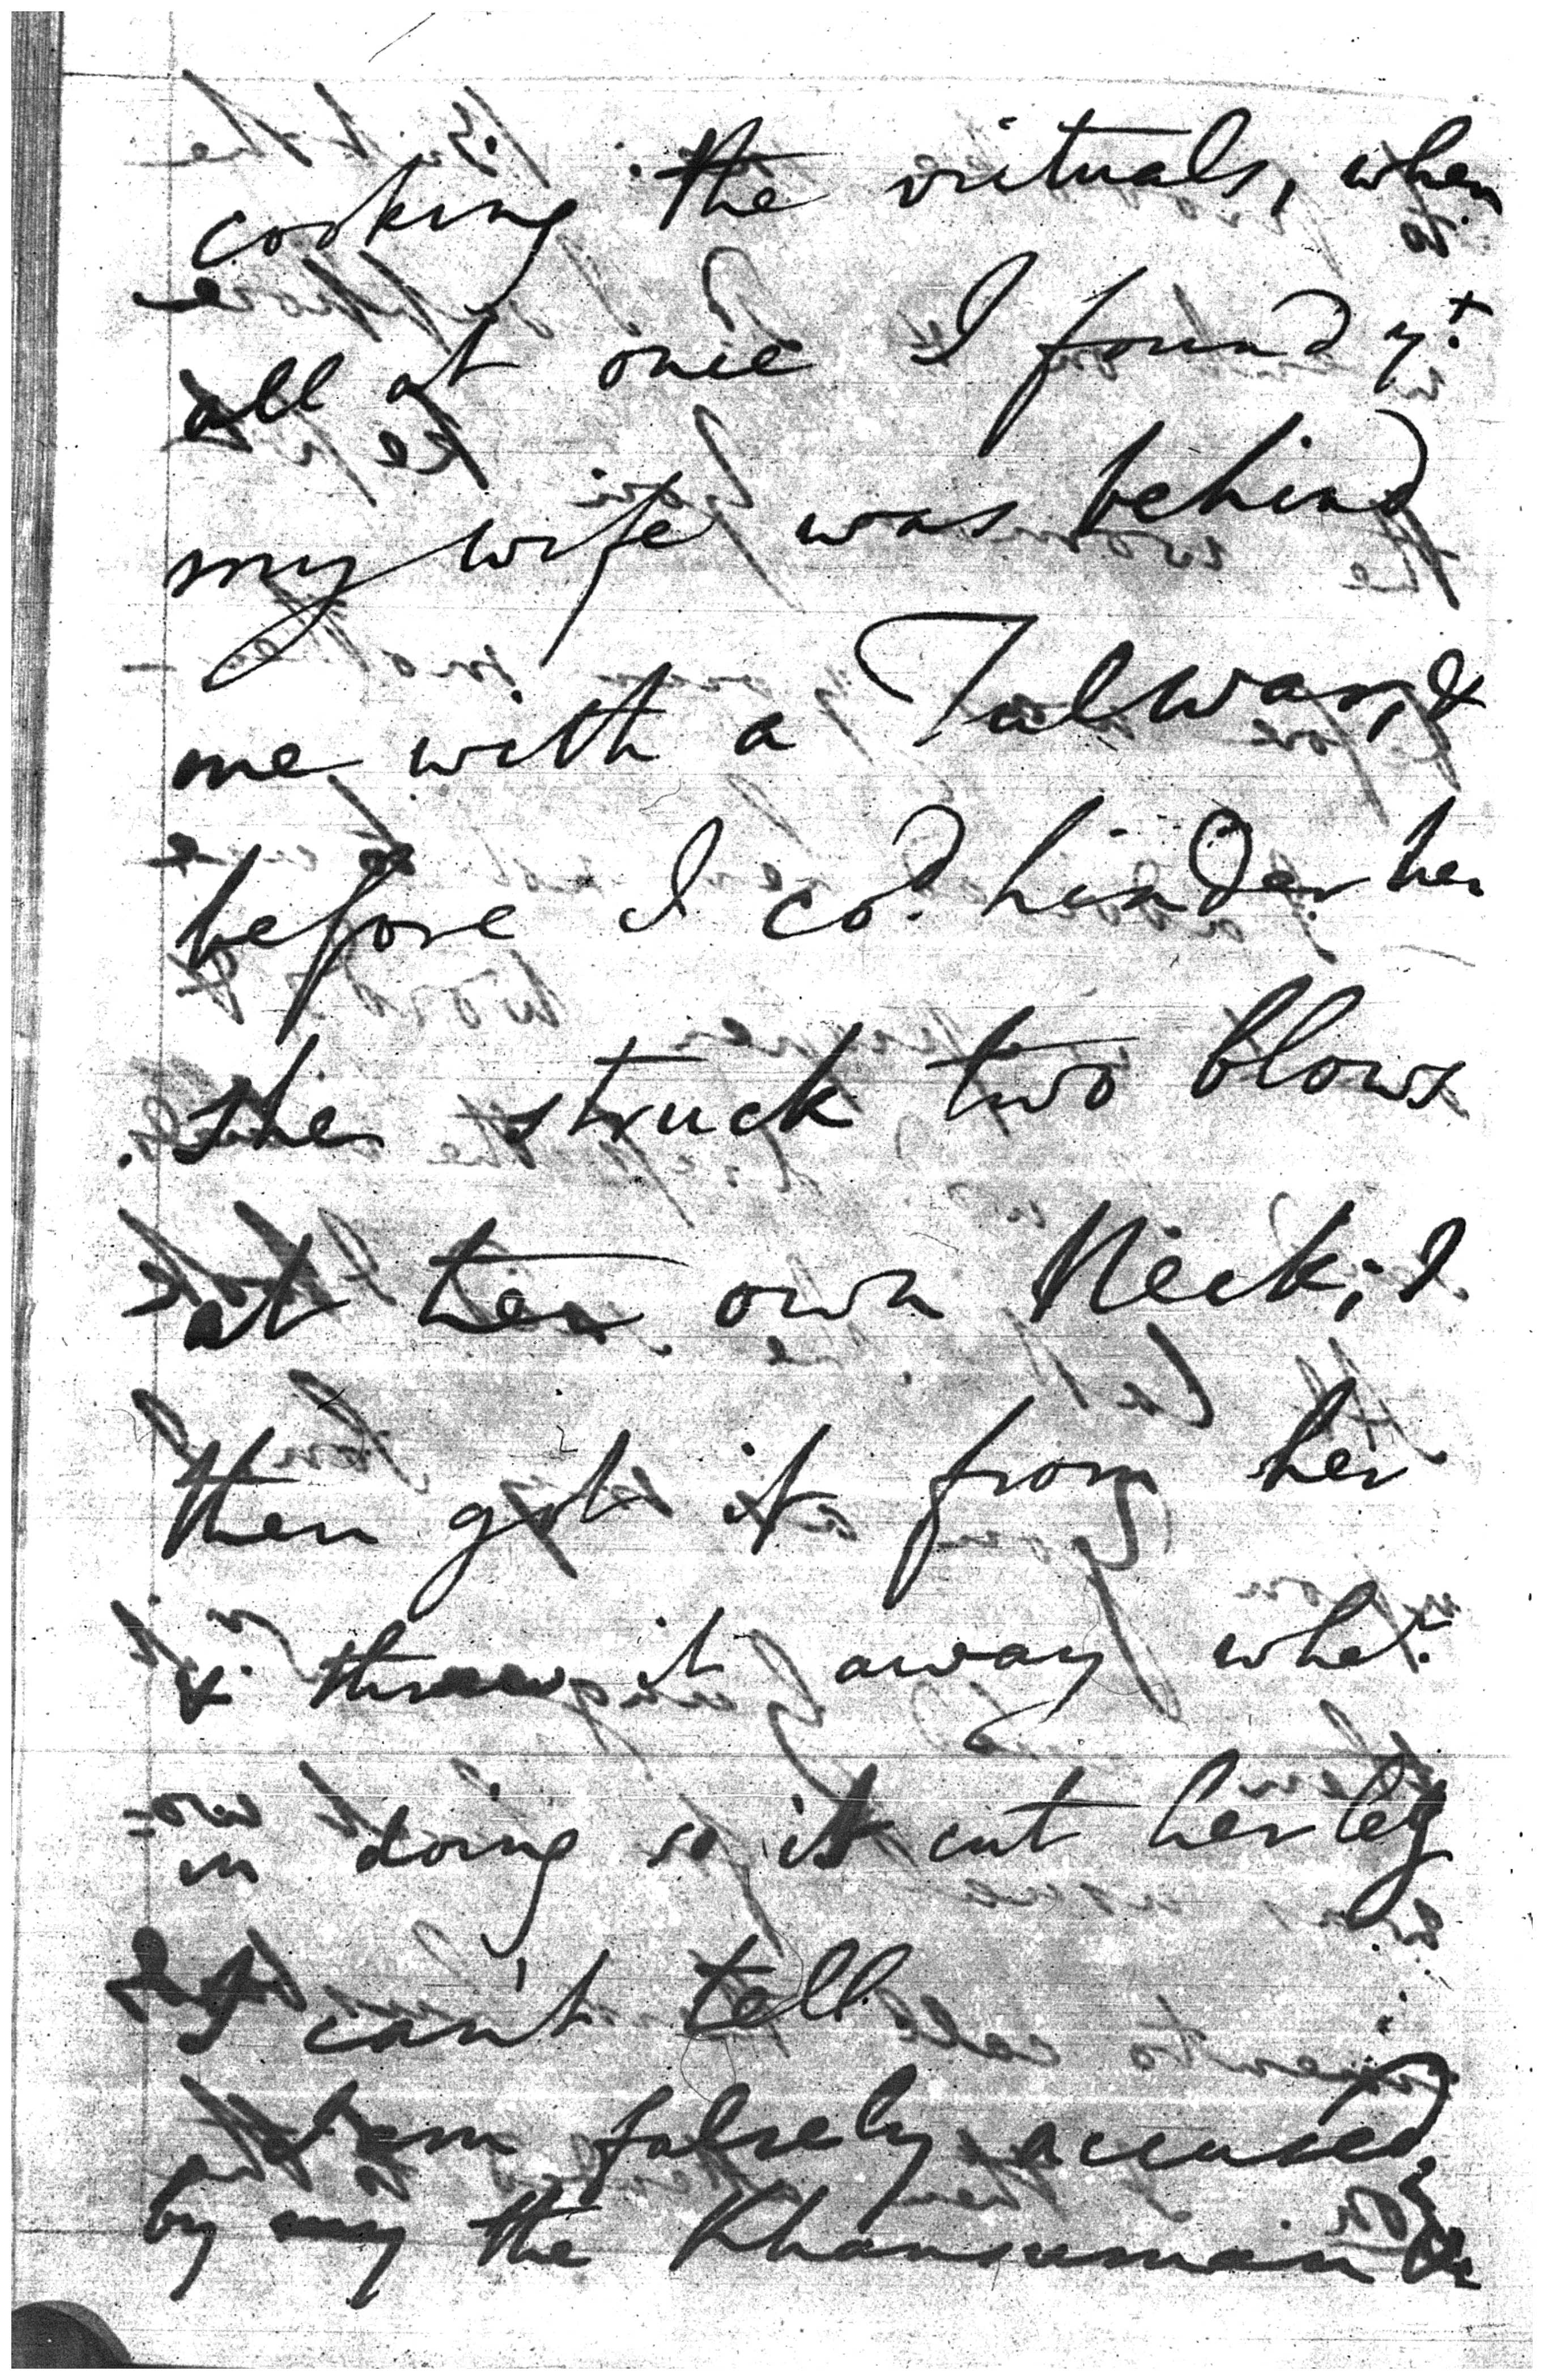 cooking the victuals, when
all at once I found yt
my wife was behind
me with a Tulwar, &
before I cod. hinder her
she struck two blows
at her own Neck; I
then got it from her
& threw it away wher.
in doing so it cut her leg
I can't tell.
I am falsely accused
by my the Khansaman &